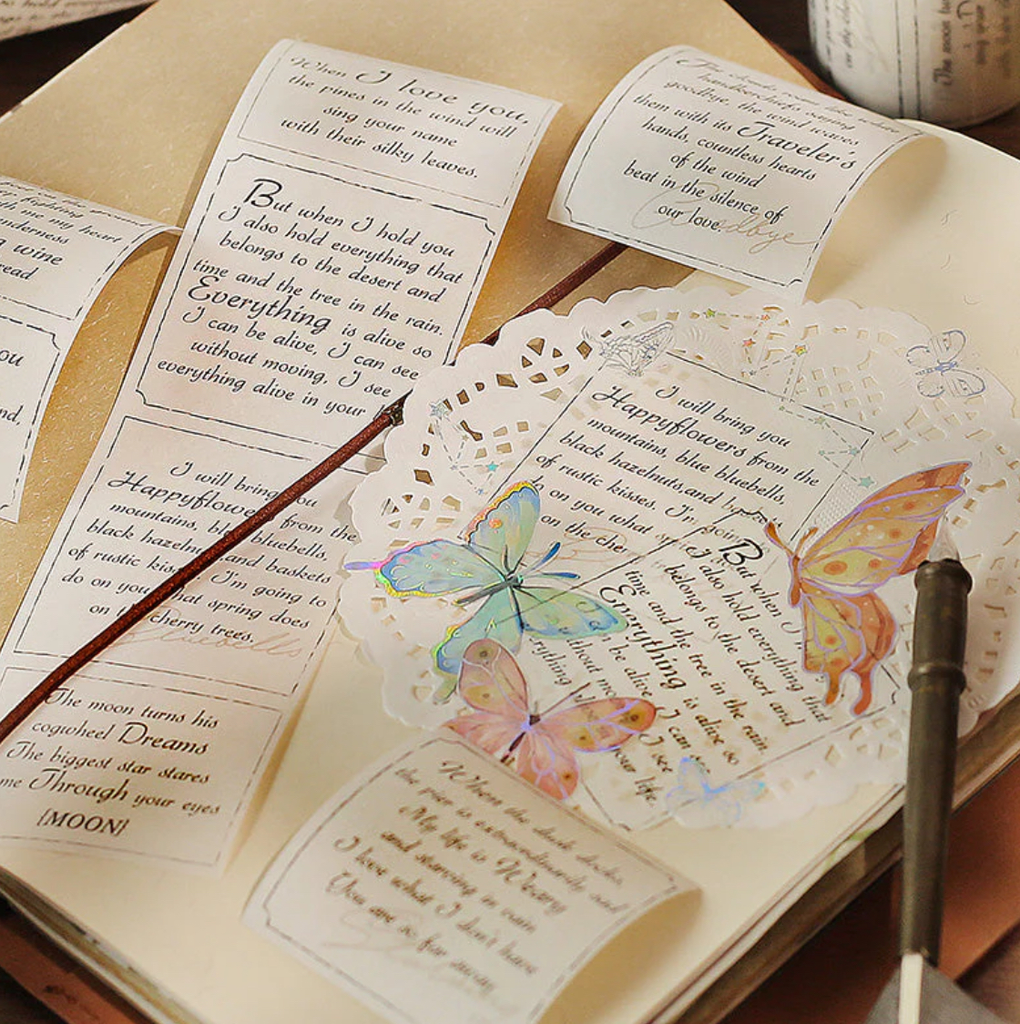 When I love you,
the pines in the wind will
sing your name
with their silky leaves.
But when I hold you
I also hold everything that
belongs to the desert and
time and the tree in the rain.
Everything is alive so
I can be alive, I can see
without moving, I see
everything alive in your
I will bring you
Happyflowers from the
mountains, bluebells,
black hazelnuts and baskets
of rustic kisses I'm going to
do on you what spring does
on the cherry trees.
Bluebells
The moon turns his
cogwheel Dreams
The biggest star stares
me Through your eyes
{MOON}
with me my heart
wine
read
you
and,
handkerchiefs saying
goodbye, the wind waves
them with its Traveler's
hands, countless hearts
of the wind
beat in the silence of
our love
Goodbye
The moon
I will bring you
Happyflowers from the
mountains, blue bluebells,
black hazelnuts, and
of rustic kisses. I'm
do on you what
on the cher
But when I
I also hold everything that
belongs to the desert and
time and the tree in the rain.
Everything is alive so
be alive, I can see
without mo I see
everything your life.
When the dusk docks,
My life is Weary
and starving in vain
I love what I don't have
You are so far away